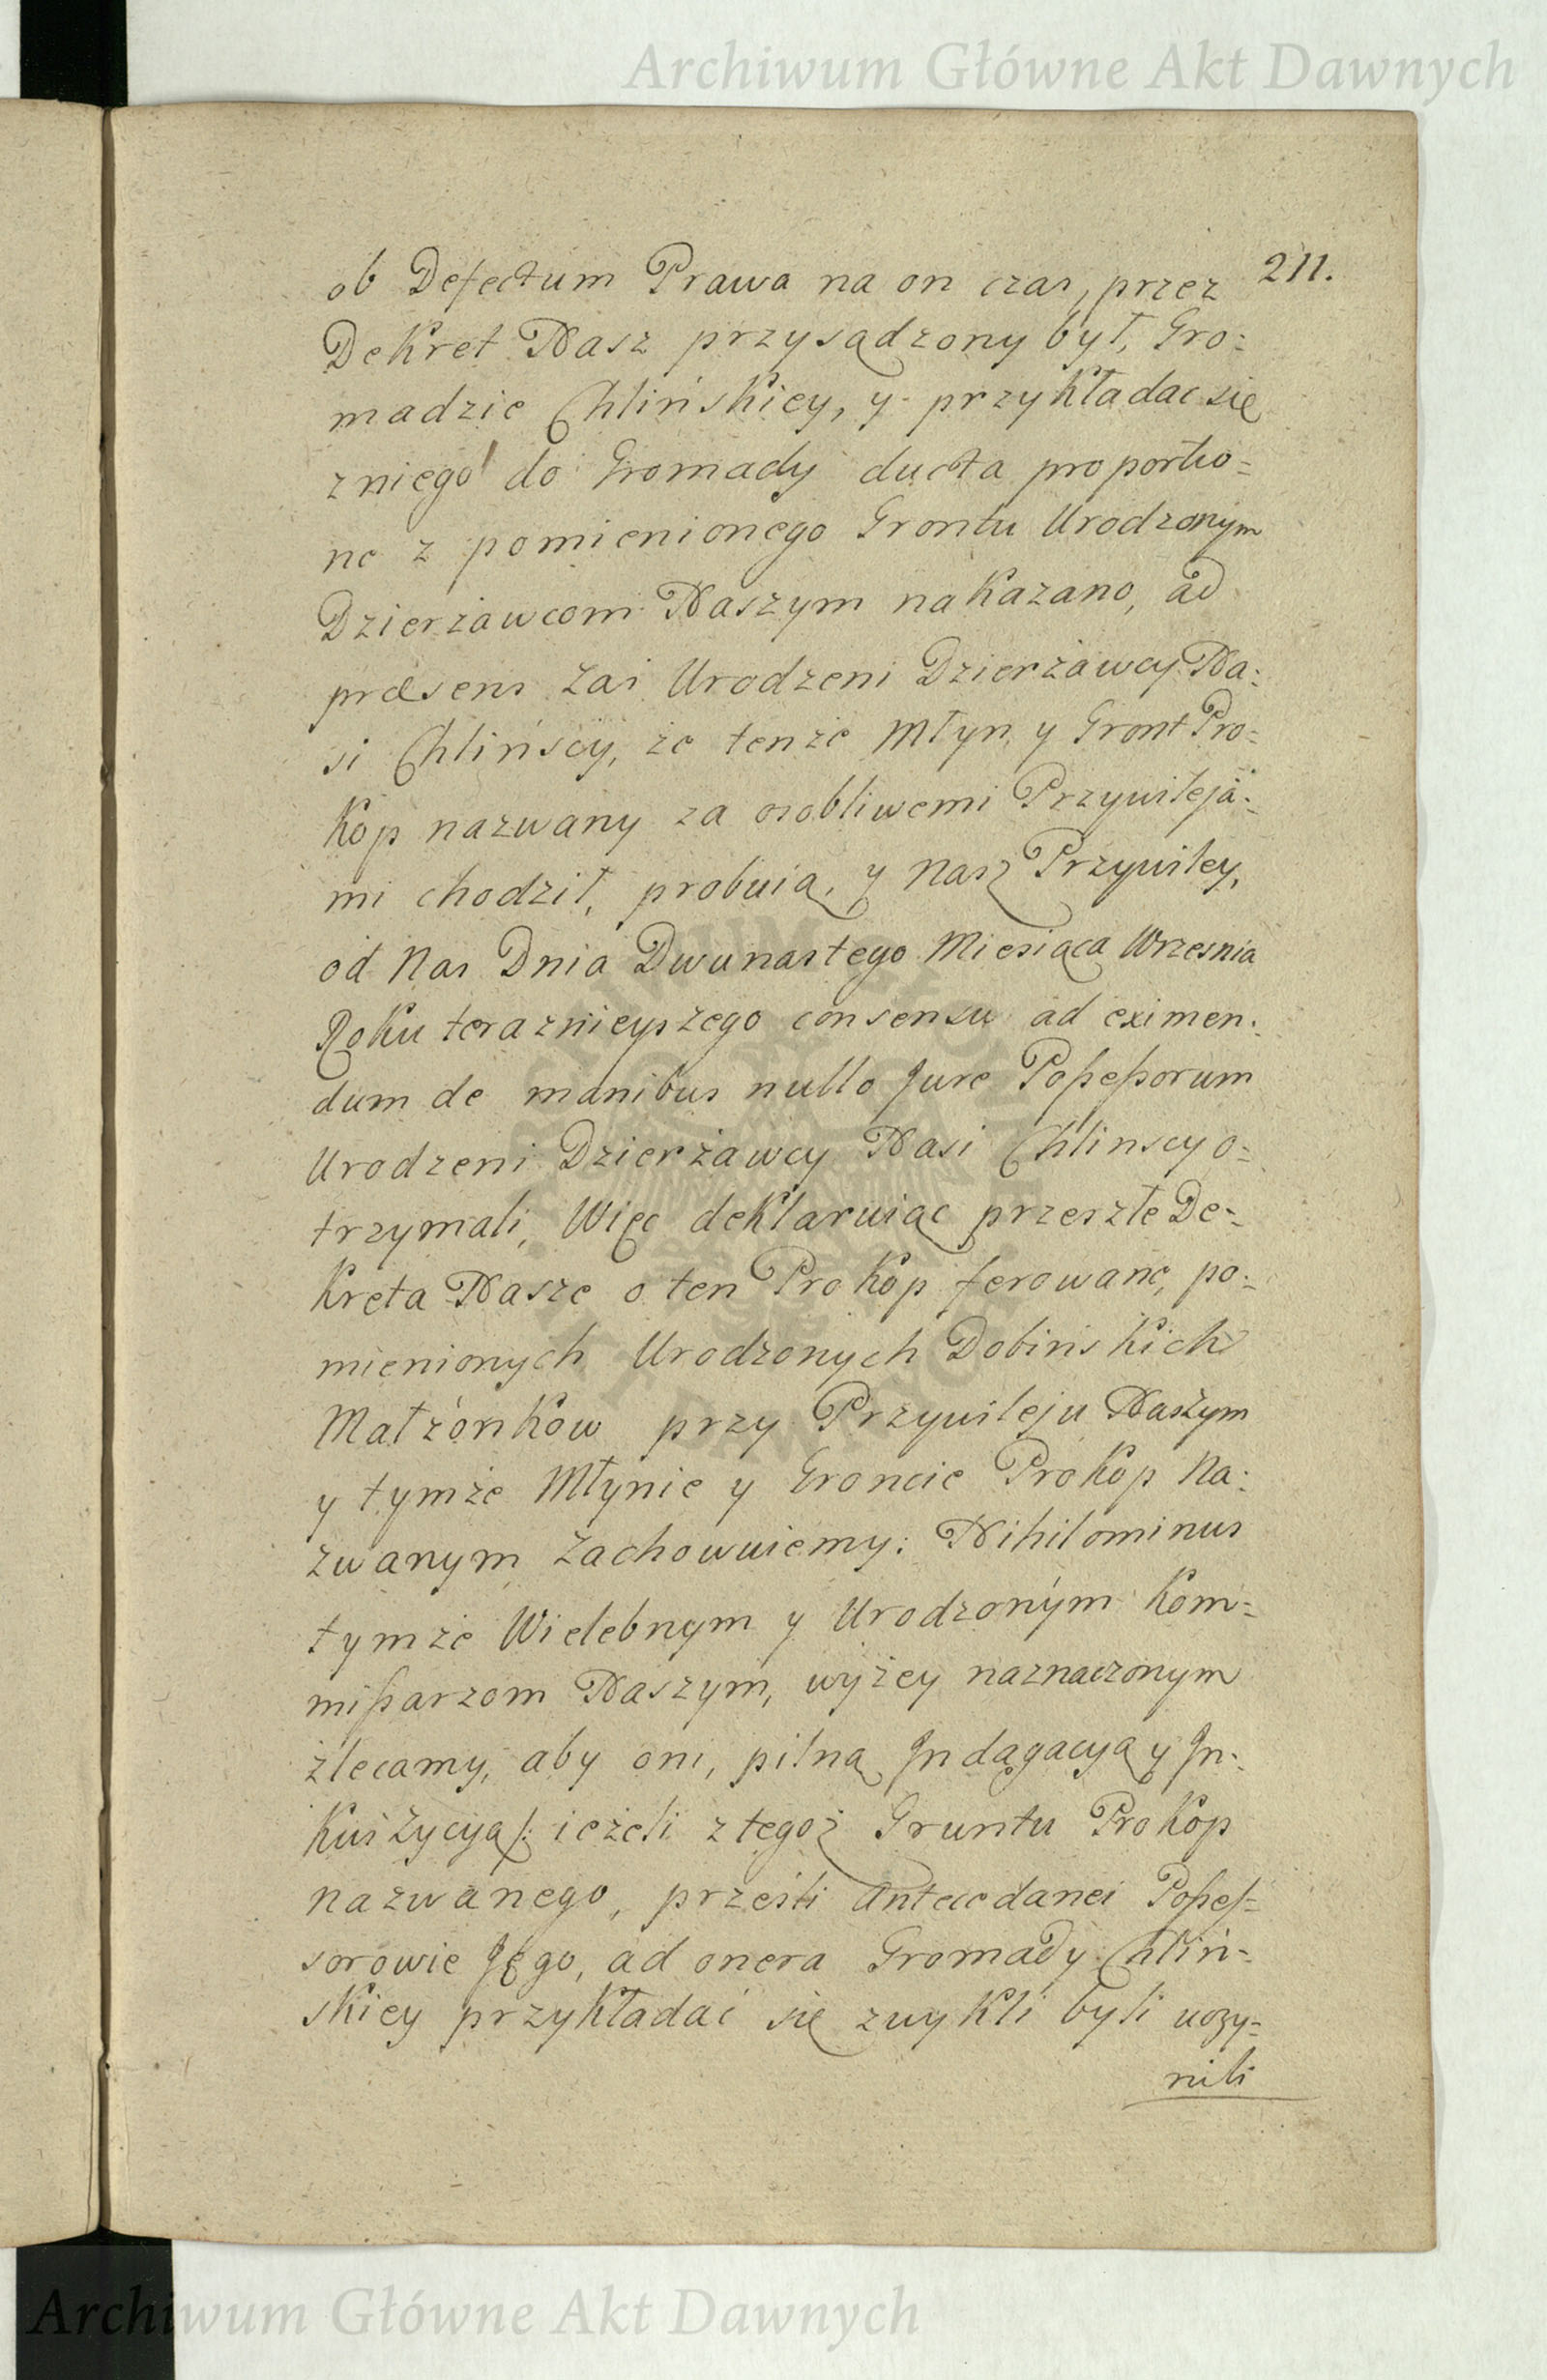 Archiwum Główne Akt Dawnych
211.
ob Defectum Prawa na on czas, przez
Dekret Nasz przysądzony był, Gro:
madzie Chlińskiey, y przykładac się
zniego do Gromady ducta proportio=
ne z pomienionego Grontu Urodzonym
Dzierżawcom Naszym nakazano, ad
præsens zaś Urodzeni Dzierżawcy Na:
si Chlińscy, że tenże Młyn y Gront Pro=
kop nazwany za osobliwemi Przywileja:
mi chodził, probuią, y Nasz Przywiley,
od Nas Dnia Dwunastego Miesiąca Wrzesnia
Roku teraznieyszego consensu ad eximen:
dum de manibus nullo Jure Poßeßorum
Urodzeni Dzierżawcy Nasi Chlinscy o=
trzymali, Więc deklaruiąc przeszłe De=
kreta Nasze o ten Prokop ferowane, po=
mienionych Urodzonych Dobińskich
Małżonków przy Przywileju Naszym
y tymże Młynie y Groncie Prokop Na:
zwanym zachowuiemy: Nihilominus
tymże Wielebnym y Urodzonym Kom=
mißarzom Naszym, wyżey naznaczonym
zlecamy, aby oni, pilną Indagacyą y In:
kwizycyą /: ieżeli z tegoż Gruntu Prokop
nazwanego, prześli Antecedanei Poßeß=
sorowie Jego, ad onera Gromady Chliń=
skiey przykładać się zwykli byli uczy=
nili
Archiwum Główne Akt Dawnych